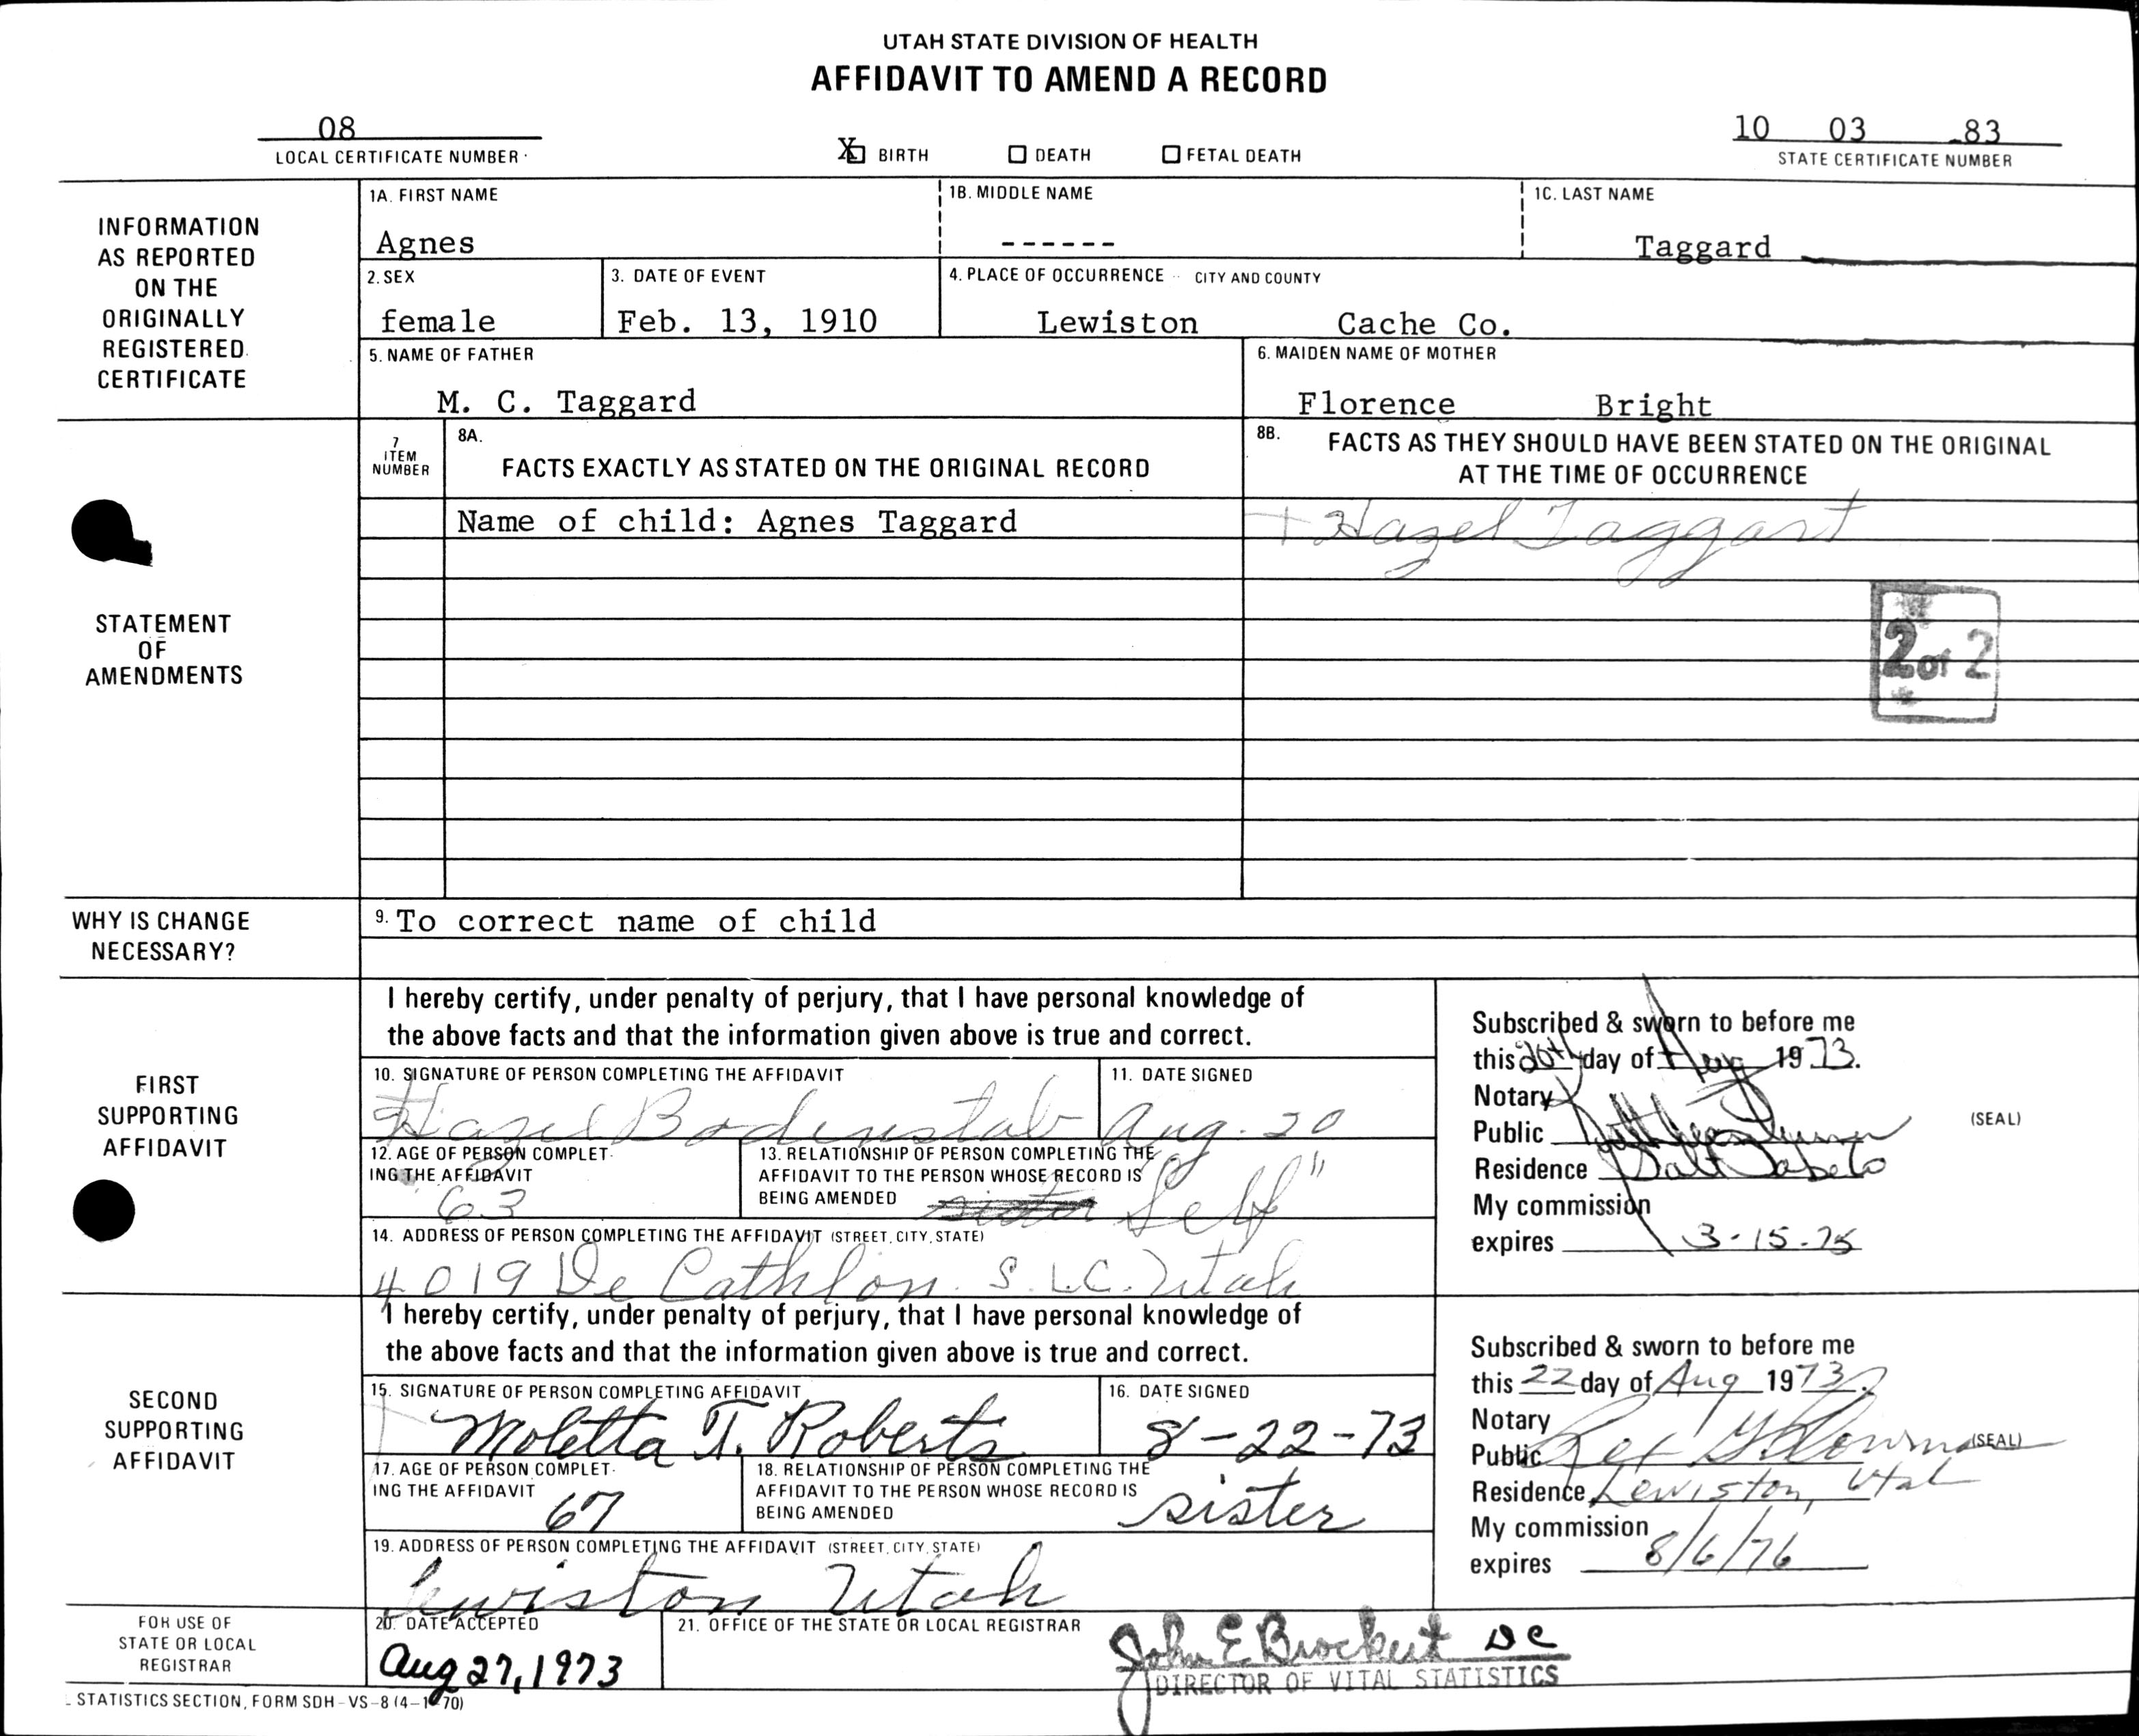 UTAH STATE DIVISION OF HEALTH
AFFIDAVIT TO AMEND A RECORD
08
LOCAL CERTIFICATE NUMBER
X BIRTH DEATH FETAL DEATH
10 03 83
STATE CERTIFICATE NUMBER
INFORMATION
AS REPORTED
ON THE
ORIGINALLY
REGISTERED
CERTIFICATE
1A. FIRST NAME 1B. MIDDLE NAME 1C. LAST NAME
Agnes ------ Taggard
2. SEX 3. DATE OF EVENT 4. PLACE OF OCCURRENCE CITY AND COUNTY
female Feb. 13, 1910 Lewiston Cache Co.
5. NAME OF FATHER 6. MAIDEN NAME OF MOTHER
M. C. Taggard Florence Bright
STATEMENT
OF
AMENDMENTS
7
ITEM
NUMBER
8A.
FACTS EXACTLY AS STATED ON THE ORIGINAL RECORD
8B. FACTS AS THEY SHOULD HAVE BEEN STATED ON THE ORIGINAL
AT THE TIME OF OCCURRENCE
Name of child: Agnes Taggard Hazel Taggart
2 of 2
WHY IS CHANGE
NECESSARY?
9. To correct name of child
FIRST
SUPPORTING
AFFIDAVIT
I hereby certify, under penalty of perjury, that I have personal knowledge of
the above facts and that the information given above is true and correct.
10. SIGNATURE OF PERSON COMPLETING THE AFFIDAVIT 11. DATE SIGNED
Hazel Bodenstab Aug. 20
12. AGE OF PERSON COMPLET-
ING THE AFFIDAVIT
63
13. RELATIONSHIP OF PERSON COMPLETING THE
AFFIDAVIT TO THE PERSON WHOSE RECORD IS
BEING AMENDED sister "Self"
14. ADDRESS OF PERSON COMPLETING THE AFFIDAVIT (STREET, CITY, STATE)
4019 De Cathlon S.L.C. Utah
Subscribed & sworn to before me
this 20th day of Aug 1973.
Notary
Public (SEAL)
Residence Salt Lake Co
My commission
expires 3-15-75
SECOND
SUPPORTING
AFFIDAVIT
I hereby certify, under penalty of perjury, that I have personal knowledge of
the above facts and that the information given above is true and correct.
15. SIGNATURE OF PERSON COMPLETING AFFIDAVIT 16. DATE SIGNED
Moletta T. Roberts 8-22-73
17. AGE OF PERSON COMPLET-
ING THE AFFIDAVIT
67
18. RELATIONSHIP OF PERSON COMPLETING THE
AFFIDAVIT TO THE PERSON WHOSE RECORD IS
BEING AMENDED sister
19. ADDRESS OF PERSON COMPLETING THE AFFIDAVIT (STREET, CITY, STATE)
Lewiston Utah
Subscribed & sworn to before me
this 22 day of Aug 1973.
Notary
Public Rex (SEAL)
Residence Lewiston, Utah
My commission
expires 8/6/76
FOR USE OF
STATE OR LOCAL
REGISTRAR
20. DATE ACCEPTED
Aug 27, 1973
21. OFFICE OF THE STATE OR LOCAL REGISTRAR
John E Brockert DC
DIRECTOR OF VITAL STATISTICS
STATISTICS SECTION, FORM SDH-VS-8 (4-1-70)